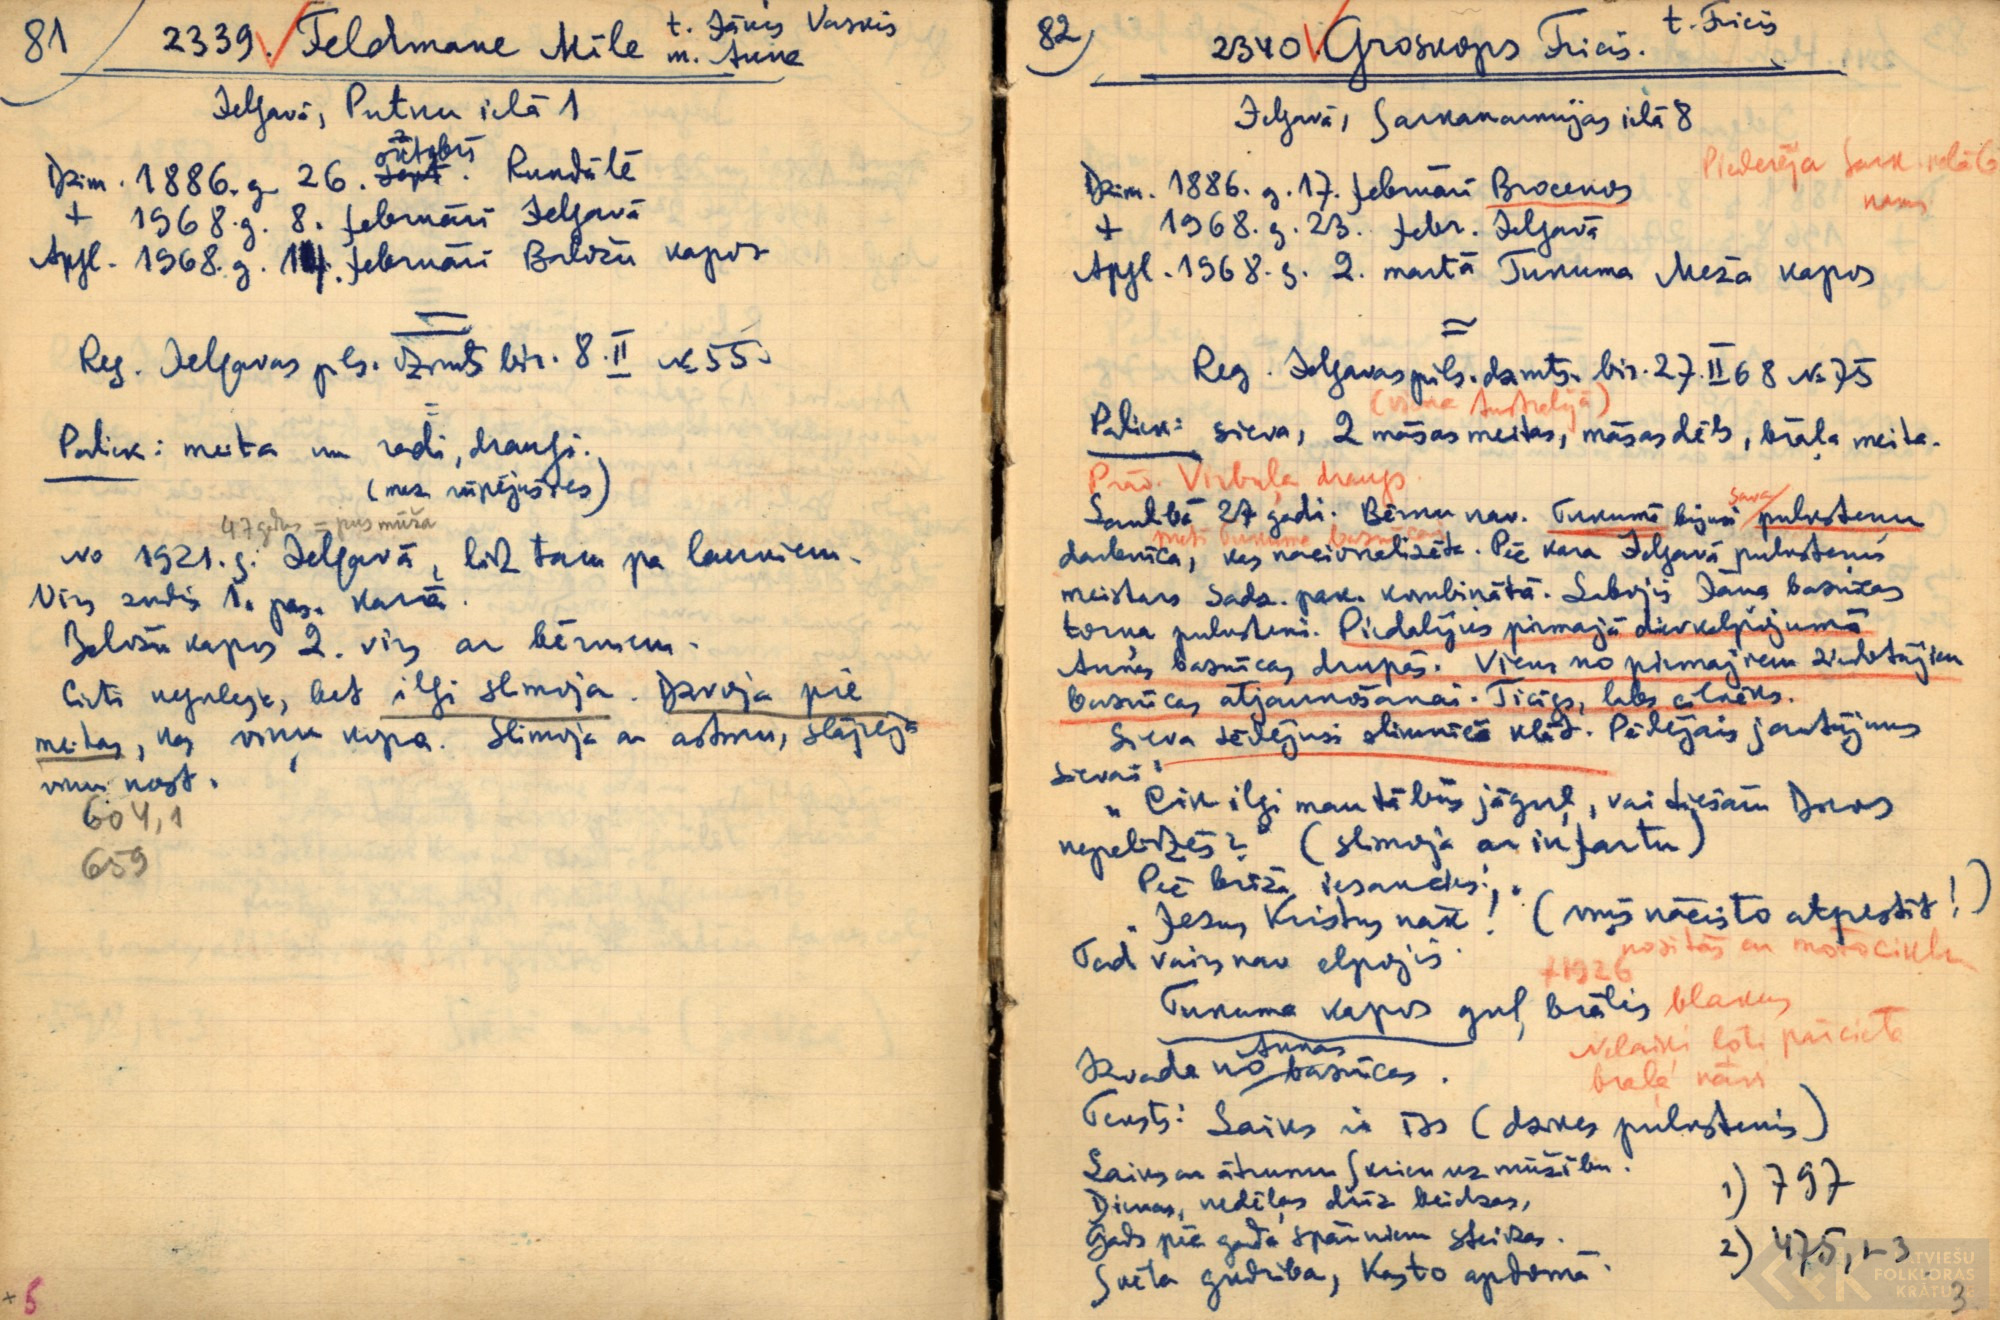 81
2339. Feldmane Mīle t. Jānis Vaskis
m. Anna
Jelgavā, Putnu ielā 1
Dzim. 1886. g. 26. oktobrī Rundālē
+ 1968. g. 8. februārī Jelgavā
Apgl. 1968. g. 14. februārī Baložu kapos
Reg. Jelgavas pils. Dzimts bir. 8. II № 55
Paliek: meita un radi, draugi.
(maz rūpējušies)
47 gadus = pus mūža
No 1921. g. Jelgavā, līdz tam pa laukiem.
Vīrs zudis 1. pas. karā.
Baložu kapos 2. vīrs ar bērniem.
Cieti negulēja, bet ilgi slimoja. Dzīvoja pie
meitas, kas viņu kopa. Slimoja ar astmu, slāpēja
viņu nost.
604,1
659
+ 5
82
2340 Groskops Fricis. t. Fricis
Jelgavā, Sarkanarmijas ielā 8
Piederēja Sark. ielā 6
nams
Dzim. 1886. g. 17. februārī Brocenos
+ 1968. g. 23. febr. Jelgavā
Apgl. 1968. g. 2. martā Tukuma Meža kapos
Reg. Jelgavas pils. dzimts. bir. 27. II 68 № 75
(viena Austrālijā)
Paliek: sieva, 2 māsas meitas, māsas dēls, brāļa meita.
Prāv. Virbuļa draugs.
Laulībā 27 gadi. Bērnu nav. Tukumā bijusi sava pulksteņu
pretī Tukuma baznīcai
darbnīca, kas nacionalizēta. Pēc kara Jelgavā pulksteņu
meistars Sadz. pak. kombinātā. Labojis Jāņa baznīcas
torņa pulksteni. Piedalījies pirmajā dievkalpojumā
Annas baznīcas drupās. Viens no pirmajiem ziedotājiem
baznīcas atjaunošanai. Ticīgs, labs cilvēks.
Sieva sēdējusi slimnīcā klāt. Pēdējais jautājums
sievai:
"Cik ilgi man tā būs jāguļ, vai tiešām Dievs
nepalīdzēs?" (slimoja ar infarktu)
Pēc brīža iesaucās:
"Jēzus Kristus nāk! (viņš nācis to atpestīt!)
Tad vairs nav elpojis.
nosities ar motociklu
+1926
Tukuma kapos guļ brālis blakus
Nelaiķi ļoti pārcieta
brāļa nāvi
Izvada no Annas baznīcas.
Teksts: Laiks ir īss (dzīves pulkstenis)
Laiks ar ātrumu skrien uz mūžību.
Dienas, nedēļas drīz beidzas,
Gads pēc gada spārniem steidzas.
Svēta gudrība, Kas to apdomā.
1) 797
2) 475, 1-3
LATVIEŠU
FOLKLORAS
KRĀTUVE
3